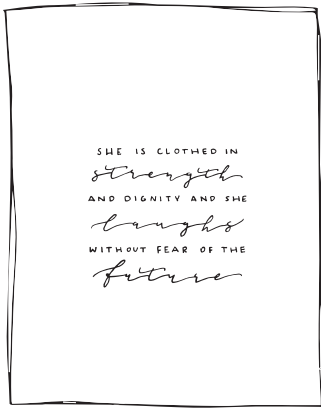 SHE IS CLOTHED IN
strength
AND DIGNITY AND SHE
laughs
WITHOUT FEAR OF THE
future